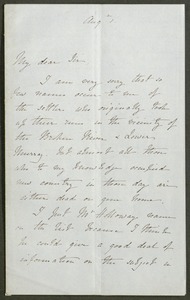 Aug
My dear Sir
I am very sorry that so
few names occur to me of
the settlers who originally took
up these runs in the vicinity of
the Broken River & Lower
Murray. But almost all those
who to my knowledge occupied
new country in those days are
either dead or gone home.
I put Mr Holloway name
on the list because I think
he could give a good deal of
information on the subject in